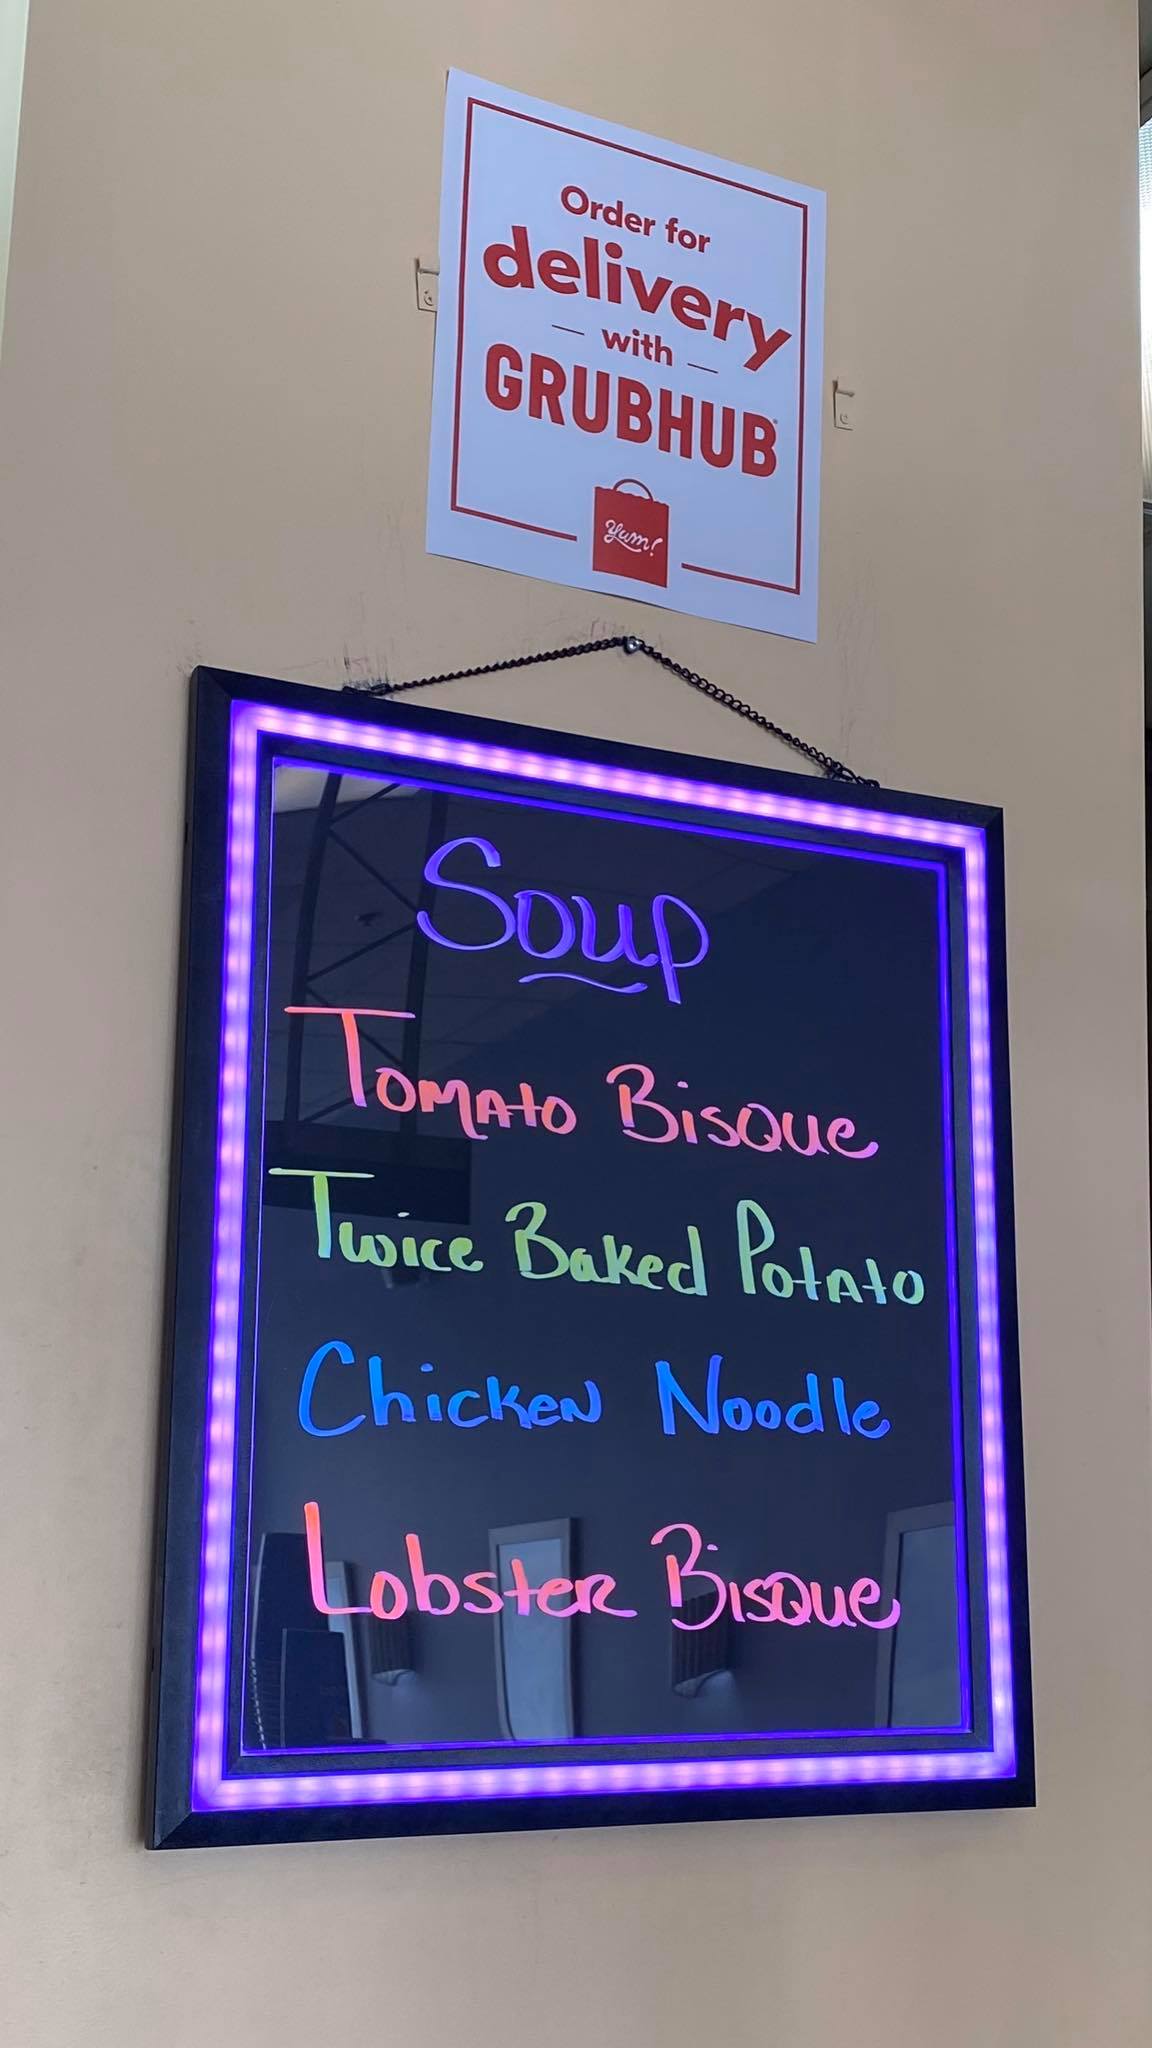 Order for
delivery
with
GRUBHUB
Yum!
Soup
Tomato Bisque
Twice Baked Potato
Chicken Noodle
Lobster Bisque